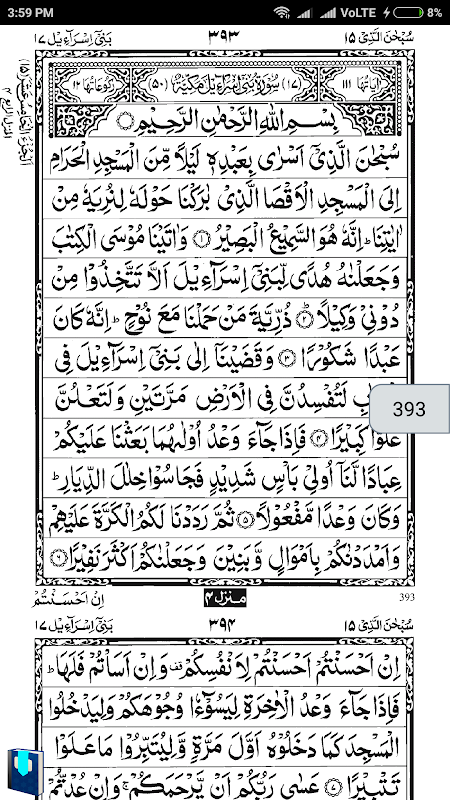 3:59 PM VoLTE 8%
سُبْحٰنَ الَّذِیْٓ ١٥ ٣٩٣ بَنِیْٓ اِسْرَآءِیْل ١٧
اٰیَاتُهَا ١١١ (١٧) سُوْرَةُ بَنِیْٓ اِسْرَآءِیْلَ مَكِّیَّةٌ (٥٠) رُكُوْعَاتُهَا ١٢
بِسْمِ اللّٰهِ الرَّحْمٰنِ الرَّحِیْمِ
سُبْحٰنَ الَّذِیْٓ اَسْرٰی بِعَبْدِهٖ لَیْلًا مِّنَ الْمَسْجِدِ الْحَرَامِ
اِلَی الْمَسْجِدِ الْاَقْصَا الَّذِیْ بٰرَكْنَا حَوْلَهٗ لِنُرِیَهٗ مِنْ
اٰیٰتِنَا ؕ اِنَّهٗ هُوَ السَّمِیْعُ الْبَصِیْرُ ﴿١﴾ وَاٰتَیْنَا مُوْسَی الْكِتٰبَ
وَجَعَلْنٰهُ هُدًی لِّبَنِیْٓ اِسْرَآءِیْلَ اَلَّا تَتَّخِذُوْا مِنْ
دُوْنِیْ وَكِیْلًا ﴿٢﴾ ذُرِّیَّةَ مَنْ حَمَلْنَا مَعَ نُوْحٍ ؕ اِنَّهٗ كَانَ
عَبْدًا شَكُوْرًا ﴿٣﴾ وَقَضَیْنَآ اِلٰی بَنِیْٓ اِسْرَآءِیْلَ فِی
لَتُفْسِدُنَّ فِی الْاَرْضِ مَرَّتَیْنِ وَلَتَعْلُنَّ
393
عُلُوًّا كَبِیْرًا ﴿٤﴾ فَاِذَا جَآءَ وَعْدُ اُوْلٰىهُمَا بَعَثْنَا عَلَیْكُمْ
عِبَادًا لَّنَآ اُولِیْ بَاْسٍ شَدِیْدٍ فَجَاسُوْا خِلٰلَ الدِّیَارِ ؕ
وَكَانَ وَعْدًا مَّفْعُوْلًا ﴿٥﴾ ثُمَّ رَدَدْنَا لَكُمُ الْكَرَّةَ عَلَیْهِمْ
وَاَمْدَدْنٰكُمْ بِاَمْوَالٍ وَّبَنِیْنَ وَجَعَلْنٰكُمْ اَكْثَرَ نَفِیْرًا ﴿٦﴾
393 منزل ٤ اِنْ اَحْسَنْتُمْ
سُبْحٰنَ الَّذِیْٓ ١٥ ٣٩٤ بَنِیْٓ اِسْرَآءِیْل ١٧
اِنْ اَحْسَنْتُمْ اَحْسَنْتُمْ لِاَنْفُسِكُمْ ۫ وَاِنْ اَسَاْتُمْ فَلَهَا ؕ
فَاِذَا جَآءَ وَعْدُ الْاٰخِرَةِ لِیَسُوْٓءٗا وُجُوْهَكُمْ وَلِیَدْخُلُوا
الْمَسْجِدَ كَمَا دَخَلُوْهُ اَوَّلَ مَرَّةٍ وَّلِیُتَبِّرُوْا مَا عَلَوْا
تَتْبِیْرًا ﴿٧﴾ عَسٰی رَبُّكُمْ اَنْ یَّرْحَمَكُمْ ۚ وَاِنْ عُدْتُّمْ